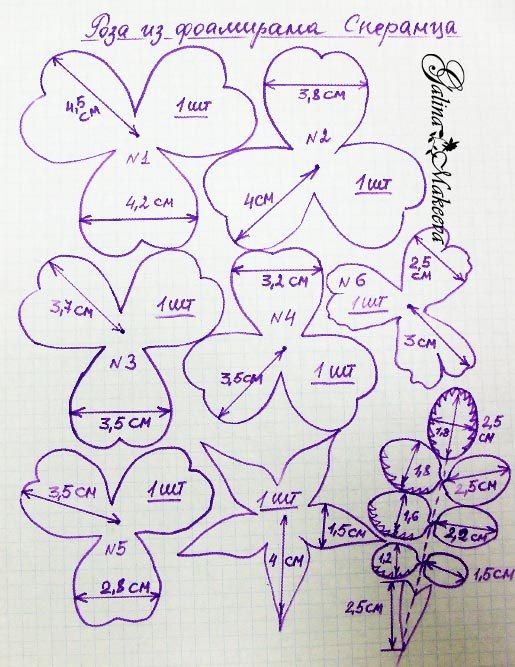 Роза из фоамирана Сперанца
Galina Makeeva
4,5 см
1 шт
N1
4,2 см
3,8 см
N2
4 см
1 шт
3,7 см
1 шт
N3
3,5 см
3,2 см
N4
3,5 см
1 шт
2,5 см
N6
1 шт
3 см
3,5 см
1 шт
N5
2,8 см
1 шт
1,5 см
4 см
1,8
2,5 см
1,8
2,5 см
1,6
2,2 см
1,2
1,5 см
2,5 см